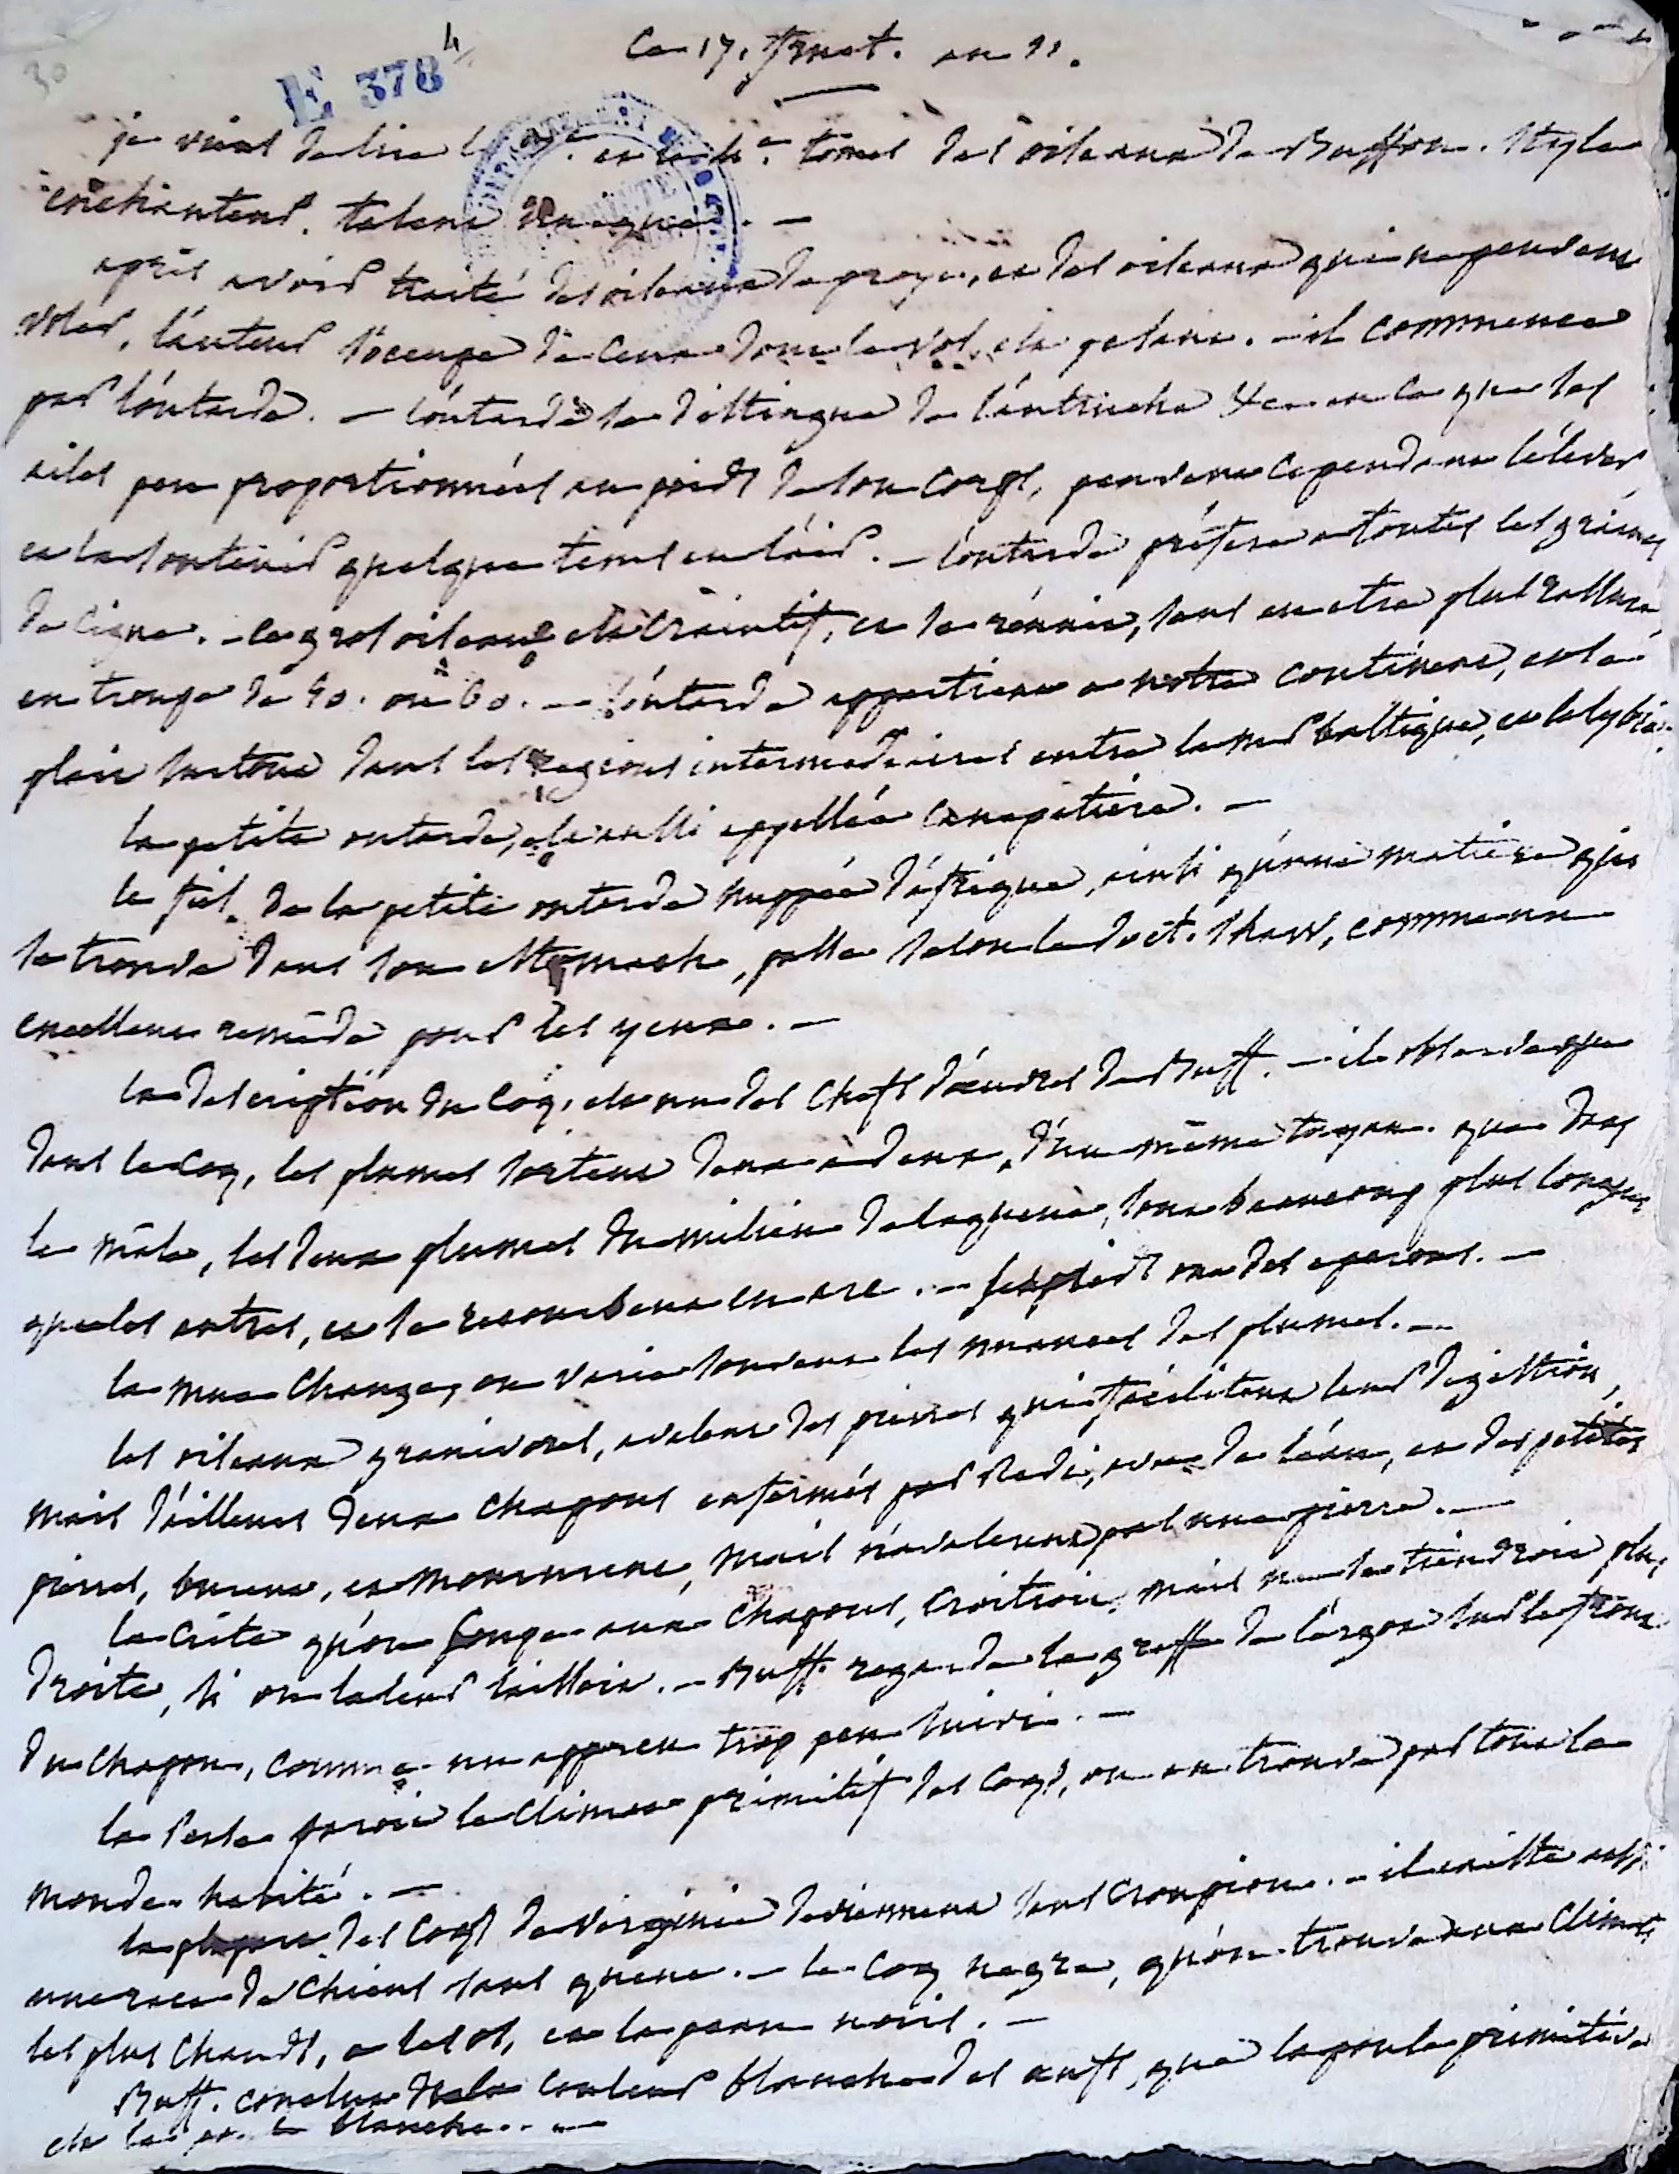 Ce 17. fruct. an 11.
E 378 4
30
je viens de lire le 3e. et le 4e. tomes des oiseaux de Buffon. Style
enchanteur. talent unique. —
après avoir traité des oiseaux de proye, et des oiseaux qui ne peuvent
voler, l'auteur s'occupe de ceux dont le vol est pesant. — il commence
par l'outarde. — l'outarde se distingue de l'autruche &c. en ce que ses
ailes peu proportionnées au poids de son corps, peuvent cependant l'élever
et la soutenir quelque tems en l'air. — l'outarde préfère à toutes les graines
de cigue. — ce gros oiseau est craintif, et se réunit, sans en etre plus rassuré,
en troupe de 40. ou 60. — l'outarde appartient a notre continent, et se
plait surtout dans les regions intermediaires entre la mer baltique, et la lybie.
la petite outarde, est aussi appellée canepetiere. —
le fiel de la petite outarde huppée d'afrique, ainsi qu'une matiere qui
se trouve dans son estomach, passe selon le doct. Shaw, comme un
excellent remède pour les yeux. —
la description du coq, est un des chefs d'œuvres de Buff. — il observe que
dans le coq, les plumes sortent deux à deux, d'un même tuyau. que dans
le mâle, les deux plumes du milieu de la queue, sont beaucoup plus longues
que les autres, et se recourbent en arc. — ses pieds ont des eperons. —
la mue change, ou varie souvent les nuances des plumes. —
les oiseaux granivores, avalent des pierres qui facilitent leur digestion,
mais d'ailleurs deux chapons enfermés par Redi, avec de l'eau, et des petites
pierres, burent, et moururent, mais n'avalerent pas une pierre. —
la crête qu'on coupe aux chapons, croitroit mais ne se tiendroit plus
droite, si on la leur laissoit. — Buff. regarde la greffe de l'ergot sur le front
du chapon, comme un apperçu trop peu suivi. —
la Perse paroit le climat primitif des coqs, on en trouve par tout le
monde habité. —
la plupart des coqs de virginie deviennent sans croupion. — il existe aussi
une race de chiens sans queue. — le coq negre, qu'on trouve aux climats
les plus chauds, a les os, et la peau noirs. —
Buff. conclut de la couleur blanche des œufs, que la poule primitive
est la blanche. —